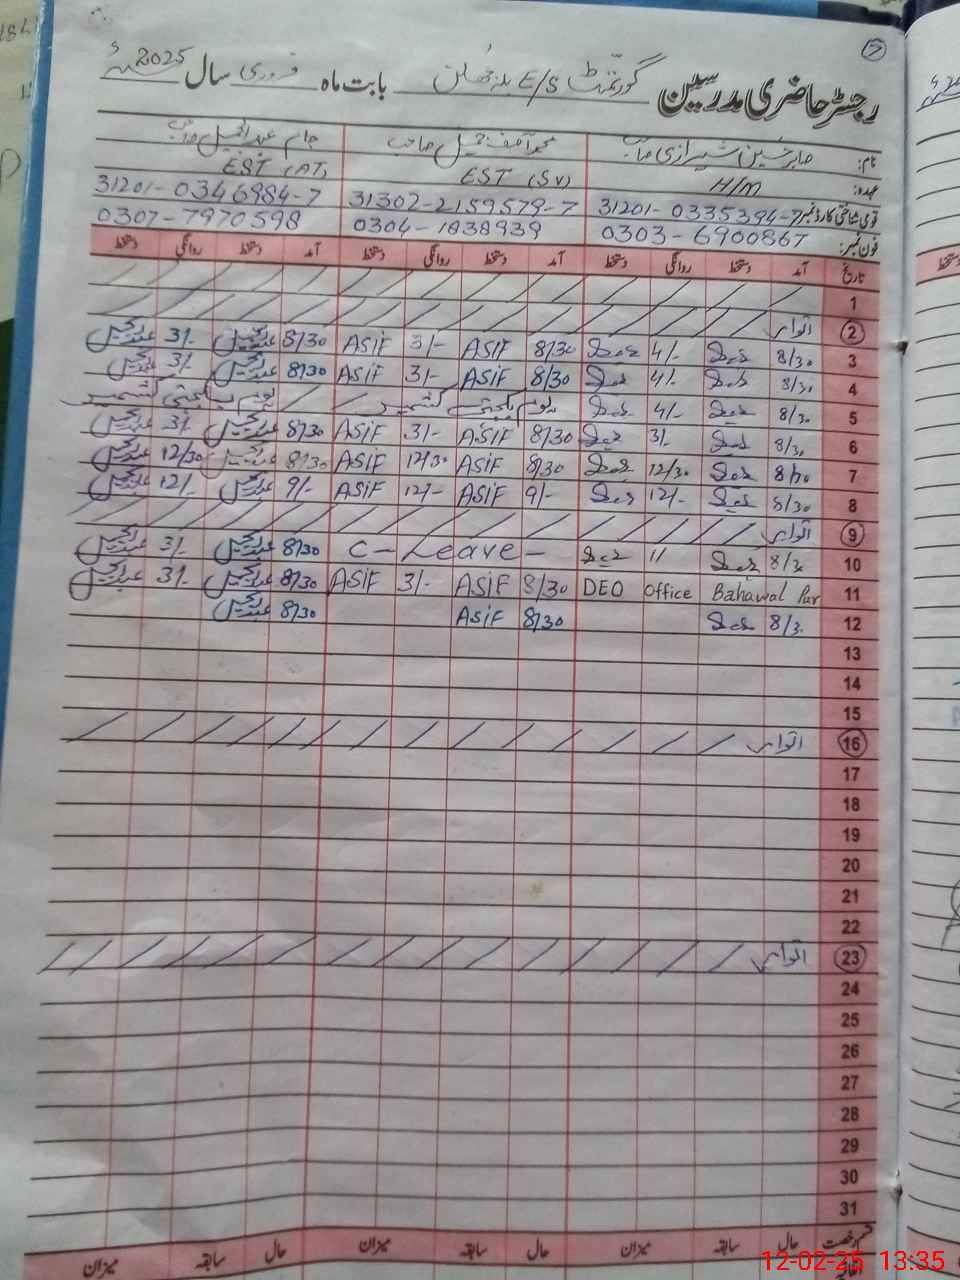 رجسٹر حاضری مدرسین گورنمنٹ E/S بابت ماہ فروری سال 2025ء
نام: صابر حسین شیرازی صاحب محمد آصف جمیل صاحب جام عبدالجمیل صاحب
عہدہ: H/M EST (SV) EST (AT)
قومی شناختی کارڈ نمبر: 31201-0335394-7 31302-2159579-7 31201-0346984-7
فون نمبر: 0303-6900867 0304-1838939 0307-7970598
تاریخ آمد دستخط روانگی دستخط آمد دستخط روانگی دستخط آمد دستخط روانگی دستخط
1
2 اتوار
3 8/30 4/- 8/30 ASIF 3/- ASIF 8/30 3/-
4 8/30 4/- 8/30 ASIF 3/- ASIF 8/30 3/-
5 8/30 4/- یوم یکجہتی کشمیر یوم یکجہتی کشمیر
6 8/30 3/- 8/30 ASIF 3/- ASIF 8/30 3/-
7 8/30 12/30 8/30 ASIF 12/30 ASIF 8/30 12/30
8 8/30 12/- 9/- ASIF 12/- ASIF 9/- 12/-
9 اتوار
10 8/30 11 C-Leave- 8/30 3/-
11 DEO Office Bahawal Pur 8/30 ASIF 3/- ASIF 8/30 3/-
12 8/30 8/30 ASIF 8/30
13
14
15
16 اتوار
17
18
19
20
21
22
23 اتوار
24
25
26
27
28
29
30
31
حال سابقہ میزان حال سابقہ میزان حال سابقہ میزان
12-02-25 13:35